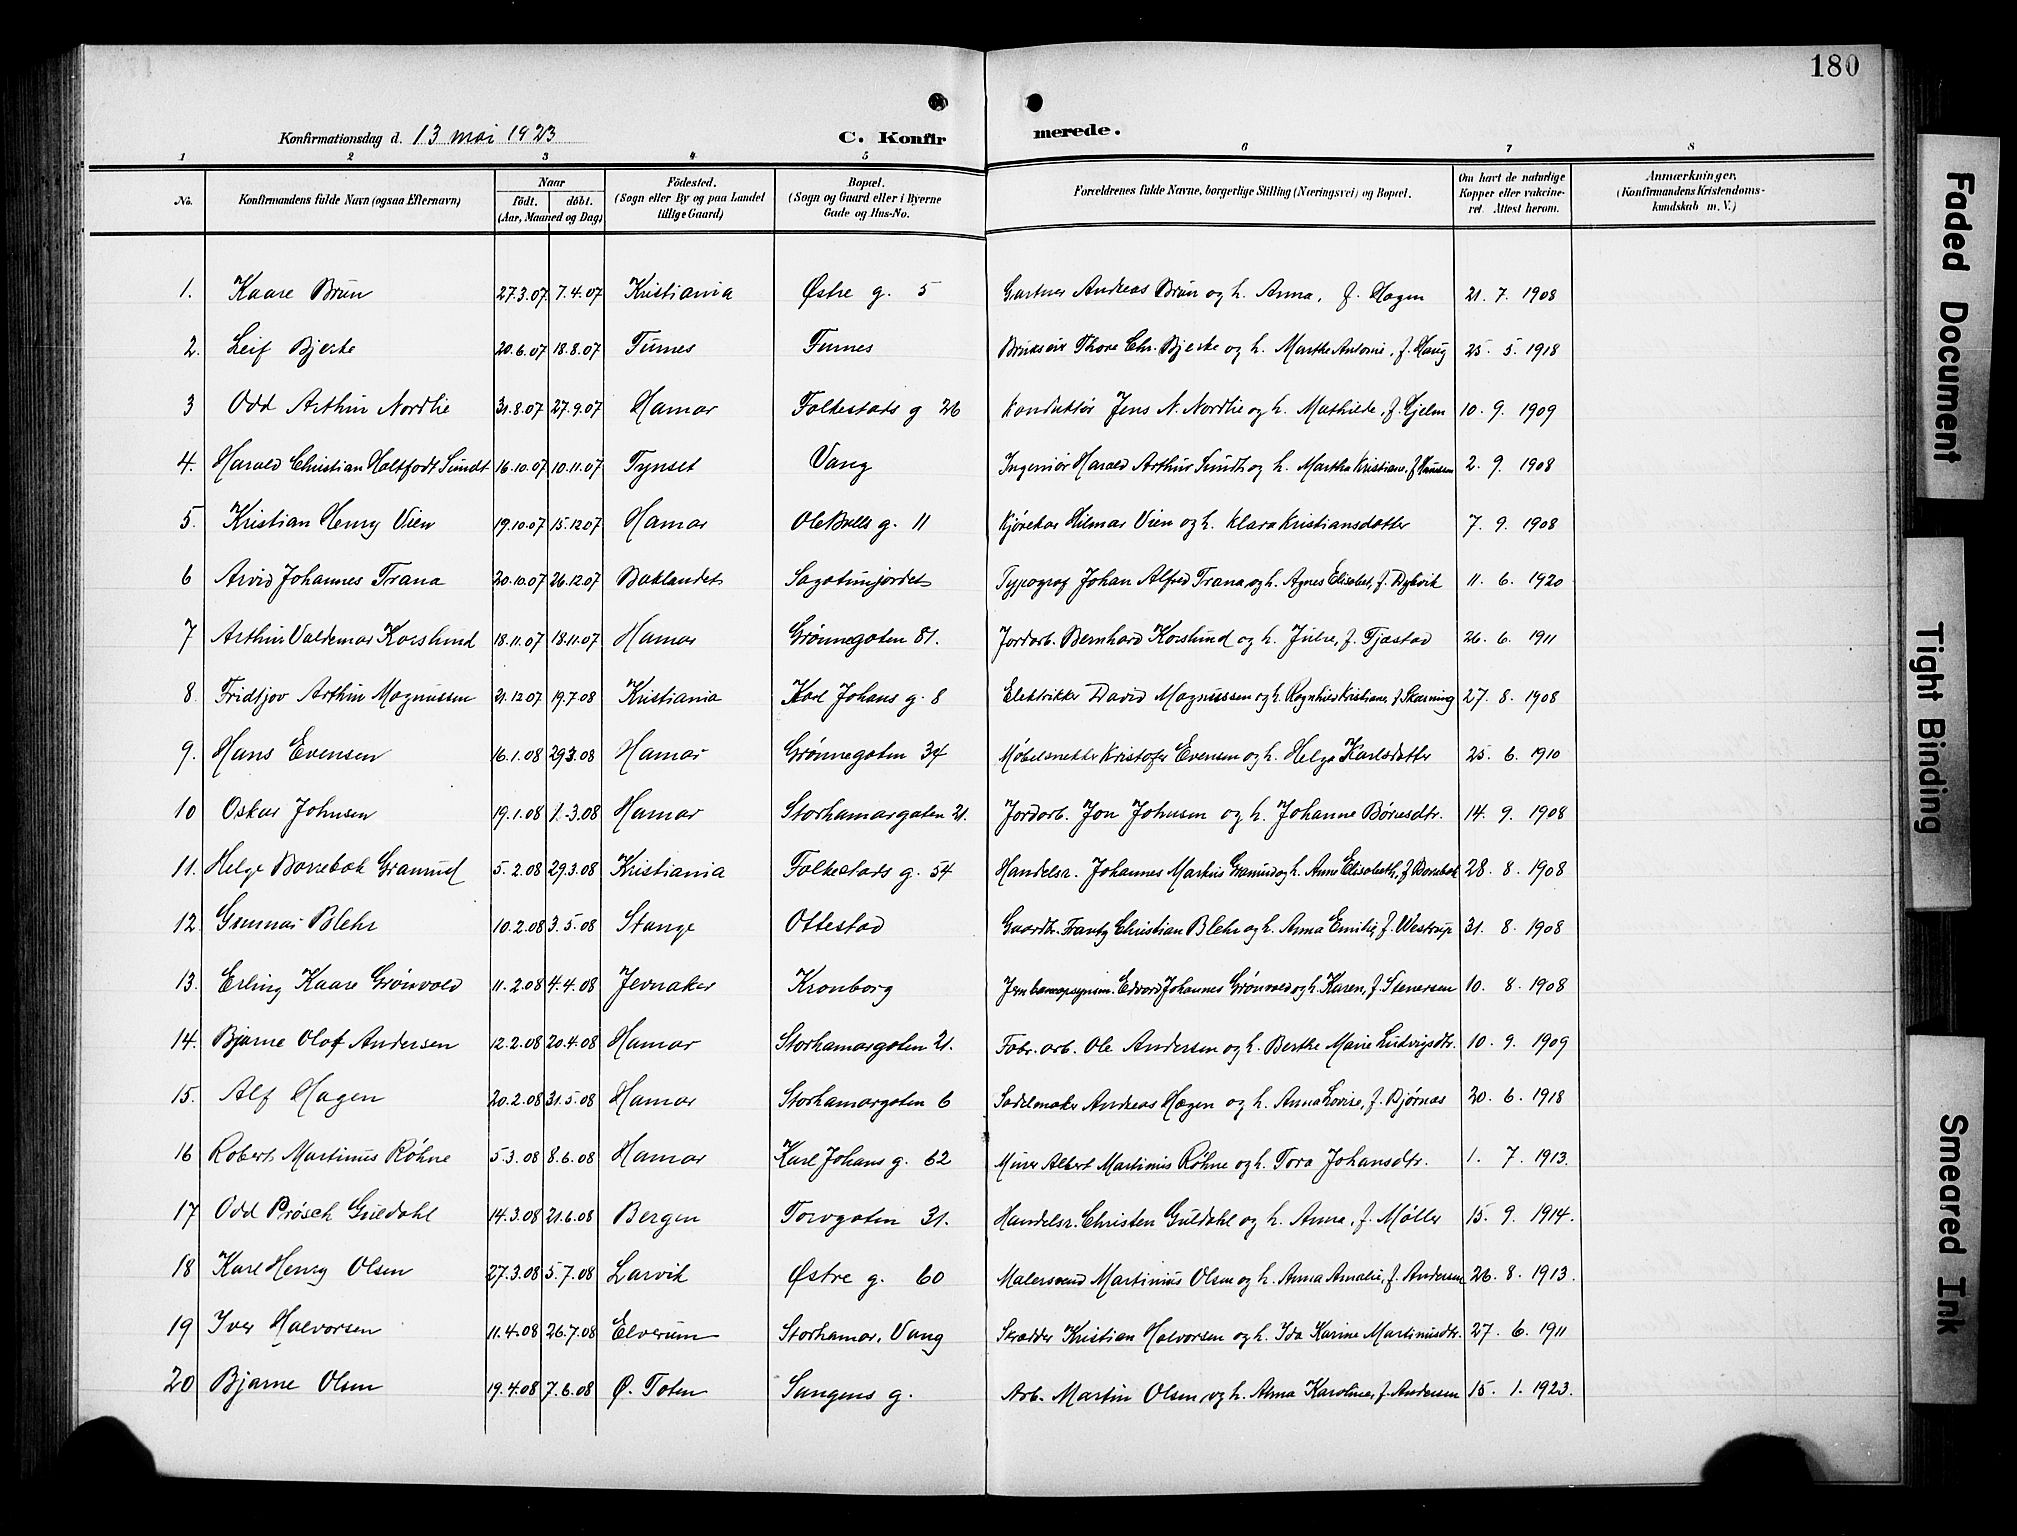 180
Konfirmationsdag d. 13 mai 1923 C. Konfirmerede.
1 2 3 4 5 6 7 8
No. Konfirmandens fulde Navn (ogsaa Efternavn) Naar födt. döbt. (Aar, Maaned og Dag) Födested. (Sogn eller By og paa Landet tillige Gaard) Bopæl. (Sogn og Gaard eller i Byerne Gade og Hus-No. Forældrenes fulde Navne, borgerlige Stilling (Næringsvei) og Bopæl. Om havt de naturlige Kopper eller vakcineret. Attest herom. Anmærkninger. (Konfirmandens Kristendomskundskab m. V.)
1. Kaare Brun 27.3.07 7.4.07 Kristiania Østre g. 5 Gartner Andreas Brun og h. Anna, f. Hagen 21. 7. 1908
2. Leif Bjerke 20.6.07 18.8.07 Furnes Furnes Brukseier Thore Chr. Bjerke og h. Marthe Antonie, f. Haug 25. 5. 1918
3 Odd Arthur Nordlie 31.8.07 27.9.07 Hamar Folkestads g 26 Konduktör Jens N. Nordlie og h. Mathilde, f. Hjelm 10. 9. 1909
4. Harald Christian Holtfodt Sundt 16.10.07 10.11.07 Tynset Vang Ingeniør Harald Arthur Sundt og h. Martha Kristiane, f. Hansen 2. 9. 1908
5. Kristian Henry Vien 19.10.07 15.12.07 Hamar Ole Bulls g. 11 Kjørekar Hilmar Vien og h. Klara Kristiansdatter 7. 9. 1908
6 Arvid Johannes Trana 20.10.07 26.12.07 Baklandet Sagatunjordet Typograf Johan Alfred Trana og h. Agnes Elisabet, f. Dybvik 11. 6. 1920
7 Arthur Valdemar Korslund 18.11.07 18.11.07 Hamar Grönnegaten 81. Jordarb. Bernhard Korslund og h. Julie, f. Tjæstad 26. 6. 1911
8. Fridtjov Arthur Magnussen 21.12.07 19.7.08 Kristiania Karl Johans g. 8 Elektrikker David Magnussen og h. Ragnhild Kristiane, f. Skarning 27. 8. 1908
9. Hans Evensen 16.1.08 29.3.08 Hamar Grönnegaten 34 Møbelsnekker Kristofer Evensen og h. Helga Karlsdatter 25. 6. 1910
10 Oskar Johnsen 19.1.08 1.-3.08 Hamar Storhamargaten 21. Jordarb. Jon Johnsen og h. Johanne Børresdtr. 14. 9. 1908
11. Helge Borrebæk Granrud 5.2.08 29.3.08 Kristiania Folkestads g. 54 Handelsr. Johannes Markus Granrud og h. Anne Elisabeth, f. Borrebæk 28. 8. 1908
12. Gunnar Blehr 10.2.08 3.5.08 Stange Ottestad Gaardbr. Frantz Christian Blehr og h. Anna Emilie, f. Westrup 31. 8. 1908
13. Erling Kaare Grönvold 11.2.08 4.4.08 Jevnaker Kronborg Jernbaneopsynsm. Edvard Johannes Grönvold og h. Karen, f. Stenersen 10. 8. 1908
14. Bjarne Olaf Andersen 12.2.08 20.4.08 Hamar Storhamargaten 21. Fabr. arb. Ole Andersen og h. Berthe Marie Ludvigsdtr. 10. 9. 1909
15. Alf Hagen 20.2.08 31.5.08 Hamar Storhamargaten 6 Sadelmaker Andreas Hagen og h. Anna Lovise, f. Bjørnas 20. 6. 1918
16 Robert Martinus Röhne 5.3.08 8.6.08 Hamar Karl Johans g. 62 Murer Albert Martinius Röhne og h. Tora Johansdtr. 1. 7. 1913.
17 Odd Prösch Guldahl 14.3.08 21.6.08 Bergen Torvgaten 31. Handelsr. Christen Guldahl og h. Anna, f. Møller 15. 9. 1914.
18 Karl Henry Olsen 27.3.08 5.7.08 Larvik Østre g. 60 Malersvend Martinius Olsen og h. Anna Amalie, f. Andersen 26. 8. 1913.
19 Iver Halvorsen 11.4.08 26.7.08 Elverum Storhamar, Vang Skrædder Kristian Halvorsen og h. Ida Karine Martinusdtr. 27. 6. 1911
20 Bjarne Olsen 19.4.08 7.6.08 Ø. Toten Sangens g. Arb. Martin Olsen og h. Anna Karoline, f. Andersen 15. 1. 1923.
Faded Document
Tight Binding
Smeared Ink